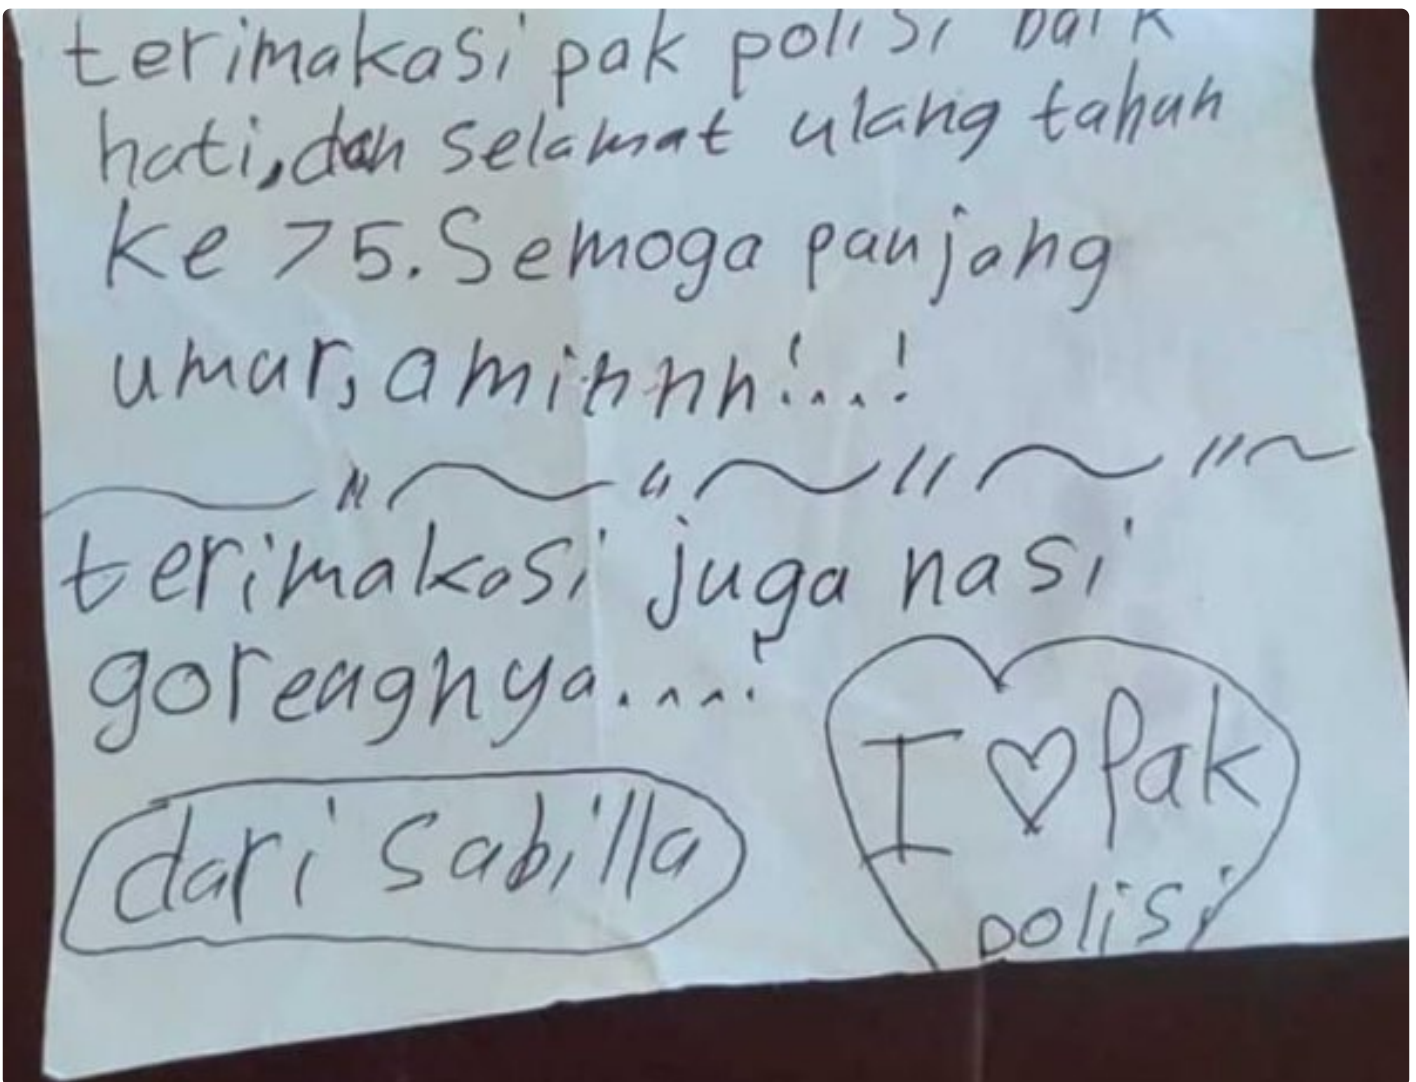 terimakasi pak polisi baik
hati, dan selamat ulang tahun
ke 75. Semoga panjang
umur, aminnnn!...!
terimakasi juga nasi
gorengnya....!
dari sabilla
I ♡ Pak
polisi